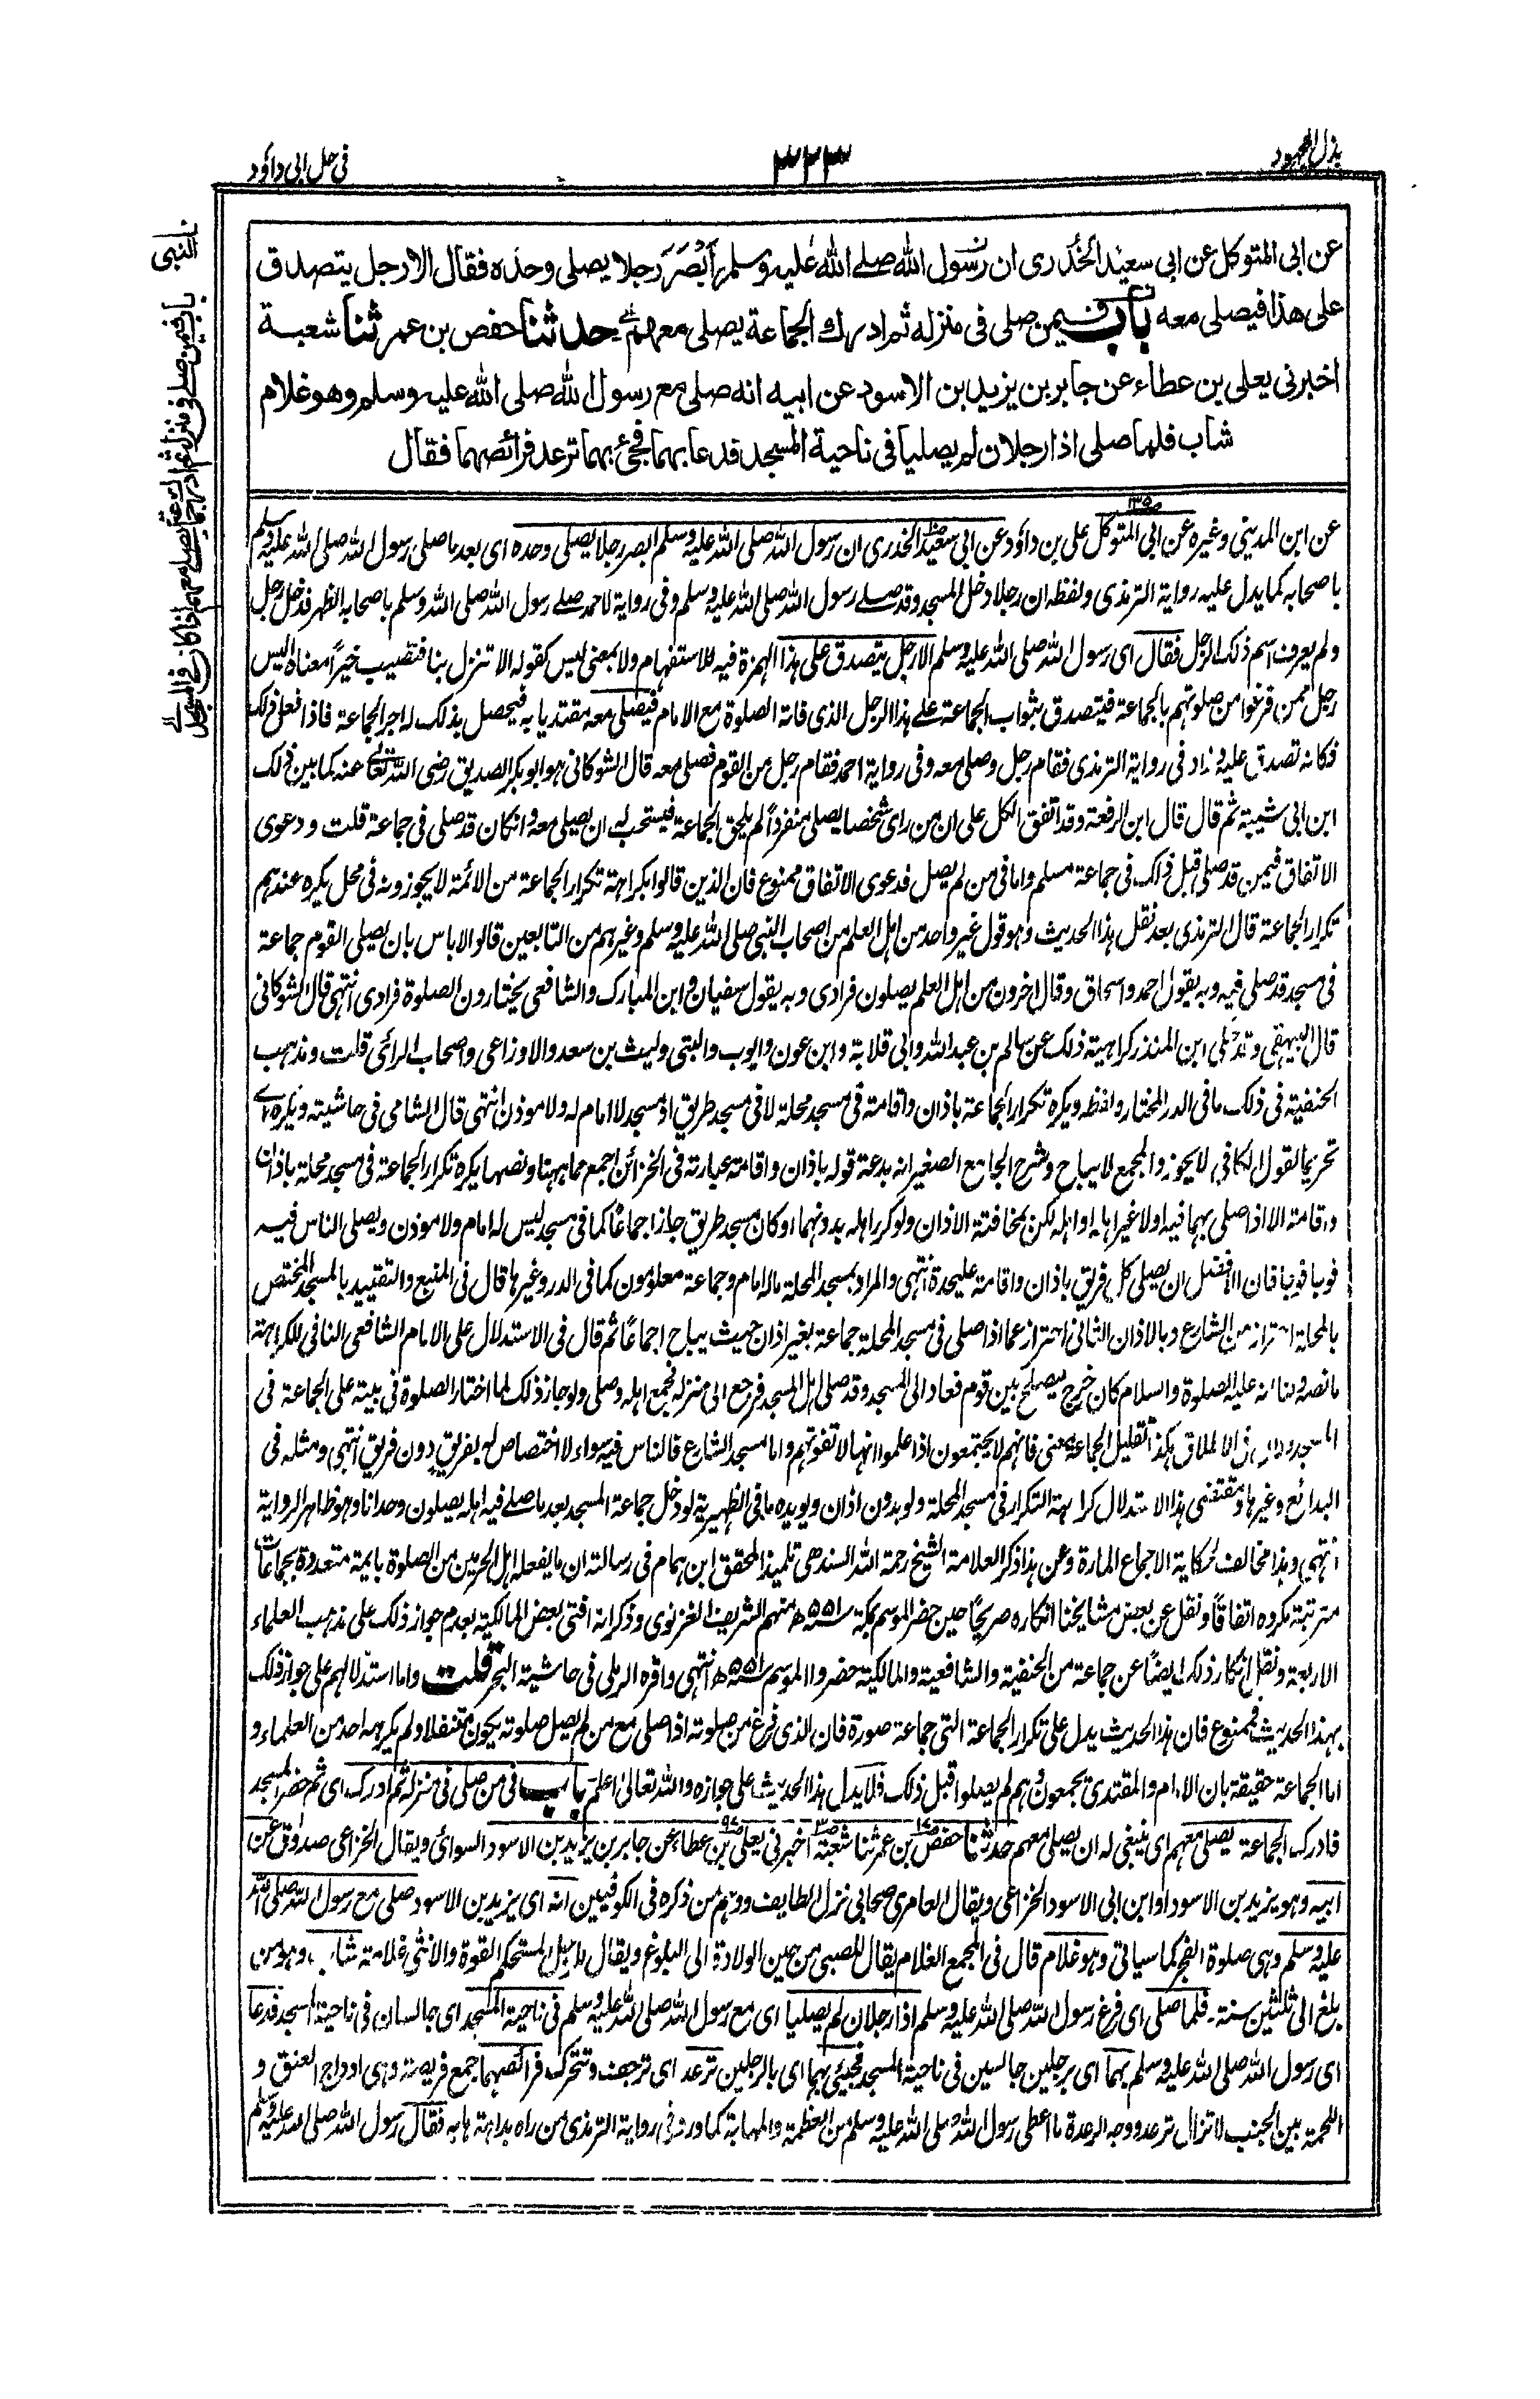 بذل المجهود
٣٣٣
فی حل ابی داؤد
عن ابی المتوکل عن ابی سعید الخدری ان رسول الله صلے الله علیہ وسلم ابصر رجلا یصلی وحدہ فقال الا رجل یتصدق
علی هذا فیصلی معه باب فیمن صلی فی منزله ثم ادرك الجماعة یصلی معهم حدثنا حفص بن عمر ثنا شعبة
اخبرنی یعلی بن عطاء عن جابر بن یزید بن الاسود عن ابیه انه صلی مع رسول الله صلی الله علیه وسلم وهو غلام
شاب فلما صلی اذا رجلان لم یصلیا فی ناحیة المسجد فدعا بهما فجئ بهما ترعد فرائصهما فقال
عن ابن المدینی وغیرہ عن ابی المتوکل علی بن داؤد عن ابی سعید الخدری ان رسول اللہ صلی اللہ علیہ وسلم ابصر رجلا یصلی وحدہ ای بعد ما صلی رسول اللہ صلی اللہ علیہ وسلم
باصحابہ کما یدل علیہ روایة الترمذی ولفظہ ان رجلا دخل المسجد وقد صلے رسول اللہ صلی اللہ علیہ وسلم وفی روایة لاحمد صلے رسول اللہ صلی اللہ وسلم باصحابہ الظہر فدخل رجل
ولم یعرف اسم ذلک الرجل فقال ای رسول اللہ صلی اللہ علیہ وسلم الا رجل یتصدق علی ہذا الہمزة فیہ للاستفہام ولا بمعنی لیس کقولہ الا تنزل بنا فتصیب خیراً معناہ الیس
رجل ممن فرغوا من صلوتہم بالجماعة فیتصدق بثواب الجماعة علے ہذا الرجل الذی فاتہ الصلوة مع الامام فیصلی معہ مقتدیا بہ فیحصل بذلک لہ اجر الجماعة فاذا فعل ذلک
فکانہ تصدق علیہ وزاد فی روایة الترمذی فقام رجل وصلی معہ وفی روایة احمد فقام رجل من القوم فصلی معہ قال الشوکانی ہو ابوبکر الصدیق رضی اللہ تعالے عنہ کما بین ذلک
ابن ابی شیبة ثم قال قال ابن الرفعة وقد اتفق الکل علی ان من رای شخصا یصلی منفرداً لم یلحق الجماعة فیستحب لہ ان یصلی معہ وان کان قد صلی فی جماعة قلت ودعوی
الاتفاق فیمن قد صلی قبل ذلک فی جماعة مسلم واما فی من لم یصل فدعوی الاتفاق ممنوع فان الذین قالوا بکراہة تکرار الجماعة من الائمة لا یجوزونہ فی محل یکرہ عندہم
تکرار الجماعة قال الترمذی بعد نقل ہذا الحدیث وہو قول غیر واحد من اہل العلم من اصحاب النبی صلی اللہ علیہ وسلم وغیرہم من التابعین قالوا لا باس بان یصلی القوم جماعة
فی مسجد قد صلی فیہ وبہ یقول احمد واسحاق وقال اخرون من اہل العلم یصلون فرادی وبہ یقول سفیان وابن المبارک والشافعی یختارون الصلوة فرادی انتہی قال الشوکانی
قال البیہقی وقد حکی ابن المنذر کراہیة ذلک عن سالم بن عبد اللہ وابی قلابة وابن عون وایوب والبتی ولیث بن سعد والاوزاعی واصحاب الرائی قلت ومذہب
الحنفیة فی ذلک ما فی الدر المختار ولفظہ ویکرہ تکرار الجماعة باذان واقامة فی مسجد محلة لا فی مسجد طریق او مسجد لا امام لہ ولا موذن انتہی قال الشامی فی حاشیتہ ویکرہ اے
تحریما لقول الکافی لا یجوز والمجمع لا یباح وشرح الجامع الصغیر انہ بدعة قولہ باذان واقامة عبارتہ فی الخزائن اجمع مما ہہنا ونصہا یکرہ تکرار الجماعة فی مسجد محلة باذان
واقامة الا اذا صلی بہما فیہ اولا غیر اہلہ او اہلہ لکن بمخافتة الاذان ولو کرر اہلہ بدونہما او کان مسجد طریق جاز اجماعاً کما فی مسجد لیس لہ امام ولا موذن ویصلی الناس فیہ
فوجا فوجا فان الافضل ان یصلی کل فریق باذان واقامة علیحدة انتہی والمراد بمسجد المحلة مالہ امام وجماعة معلومون کما فی الدرر وغیرہا قال فی المنبع والتقیید بالمسجد المختص
بالمحلة احتراز من الشارع وبالاذان الثانی احتراز عما اذا صلی فی مسجد المحلة جماعة بغیر اذان حیث یباح اجماعاً ثم قال فی الاستدلال علی الامام الشافعی النافی للکراہة
ما نصہ ولنا انہ علیہ الصلوة والسلام کان خرج لیصلح بین قوم فعاد الی المسجد وقد صلی اہل المسجد فرجع الی منزلہ فجمع اہلہ وصلی ولو جاز ذلک لما اختار الصلوة فی بیتہ علی الجماعة فی
المسجد ولان فی الاطلاق ہکذا تقلیل الجماعة معنی فانہم لا یجتمعون اذا علموا انہا لا تفوتہم واما مسجد الشارع فالناس فیہ سواء لا اختصاص لہ بفریق دون فریق انتہی ومثلہ فی
البدائع وغیرہا ومقتضی ہذا الاستدلال کراہة التکرار فی مسجد المحلة ولو بدون اذان ویویدہ ما فی الظہیریة لو دخل جماعة المسجد بعد ما صلے فیہ اہلہ یصلون وحدانا وہو ظاہر الروایة
انتہی وہذا مخالف لحکایة الاجماع المارة وعن ہذا ذکر العلامة الشیخ رحمة اللہ السندھی تلمیذ المحقق ابن ہمام فی رسالتہ ان ما یفعلہ اہل الحرمین من الصلوة بایمة متعددة بجماعات
مترتبة مکروہ اتفاقاً ونقل عن بعض مشایخنا انکارہ صریحاً حین حضر الموسم بمکة سنہ ۵۵۱ھ منہم الشریف الغزنوی وذکر انہ افتی بعض المالکیة بعدم جواز ذلک علی مذہب العلماء
الاربعة ونقل انکار ذلک ایضاً عن جماعة من الحنفیة والشافعیة والمالکیة حضروا الموسم سنہ ۵۵۱ھ انتہی واقرہ الرملی فی حاشیة البحر قلت واما استدلالہم علی جواز ذلک
بہذا الحدیث فممنوع فان ہذا الحدیث یدل علی تکرار الجماعة التی جماعة صورة فان الذی فرغ من صلوتہ اذا صلی مع من لم یصل صلوتہ یکون متنفلا ولم یکرہہ احد من العلماء و
اما الجماعة حقیقة بان الامام والمقتدی یجمعون وہم لم یصلوا قبل ذلک فلا یدل ہذا الحدیث علی جوازہ واللہ تعالیٰ اعلم باب فی من صلی فی منزلہ ثم ادرک ای ثم حضر المسجد
فادرک الجماعة یصلی معہم ای ینبغی لہ ان یصلی معہم حدثنا حفص بن عمر ثنا شعبة اخبرنی یعلی بن عطاء عن جابر بن یزید بن الاسود السوائی ویقال الخزاعی صدوق عن
ابیہ وہو یزید بن الاسود او ابن ابی الاسود الخزاعی ویقال العامری صحابی نزل الطایف ووہم من ذکرہ فی الکوفیین انہ ای یزید بن الاسود صلی مع رسول اللہ صلی اللہ
علیہ وسلم وہی صلوة الفجر کما سیاتی وہو غلام قال فی المجمع الغلام یقال للصبی من حین الولادة الی البلوغ ویقال للرجل المستحکم القوة والانثی غلامة شاب وہو من
بلغ الی ثلثین سنة۔ فلما صلی ای فرغ رسول اللہ صلی اللہ علیہ وسلم اذا رجلان لم یصلیا ای مع رسول اللہ صلی اللہ علیہ وسلم فی ناحیة المسجد ای جالسان فی ناحیة المسجد فدعا
ای رسول اللہ صلی اللہ علیہ وسلم بہما ای برجلین جالسین فی ناحیة المسجد فجیئ بہما ای بالرجلین ترعد ای ترجف وتتحرک فرائصہما جمع فریصة وہی اوداج العنق و
اللحمة بین الجنب لا تزال ترعد ووجہ الرعدة ما اعطی رسول اللہ صلی اللہ علیہ وسلم من العظمة والمہابة کما ورد فی روایة الترمذی من راہ بداہة ہابہ فقال رسول اللہ صلی اللہ علیہ وسلم
النبی
باب فیمن صلے فی منزلہ ثم ادرك جماعة یصلے معهم اذا كان فی المسجد